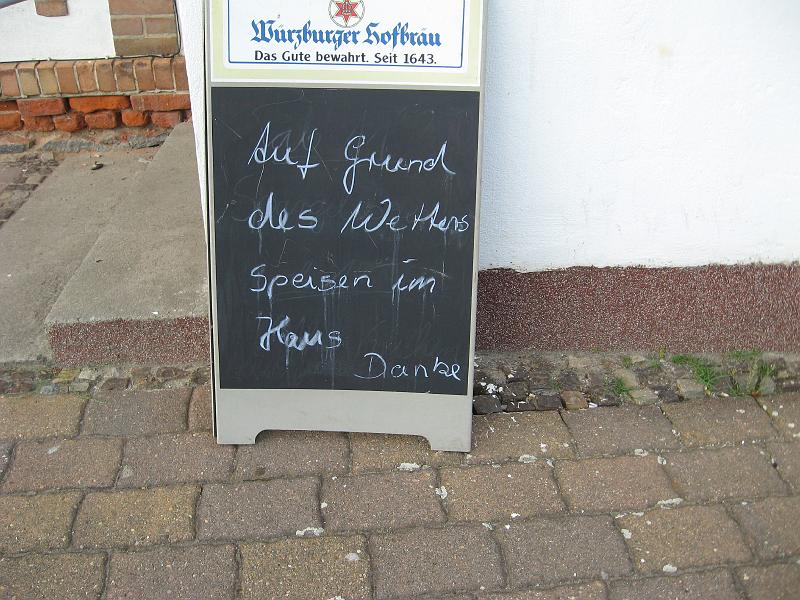 Würzburger Hofbräu
Das Gute bewahrt. Seit 1643.
Auf Grund
des Wetters
Speisen im
Haus
Danke